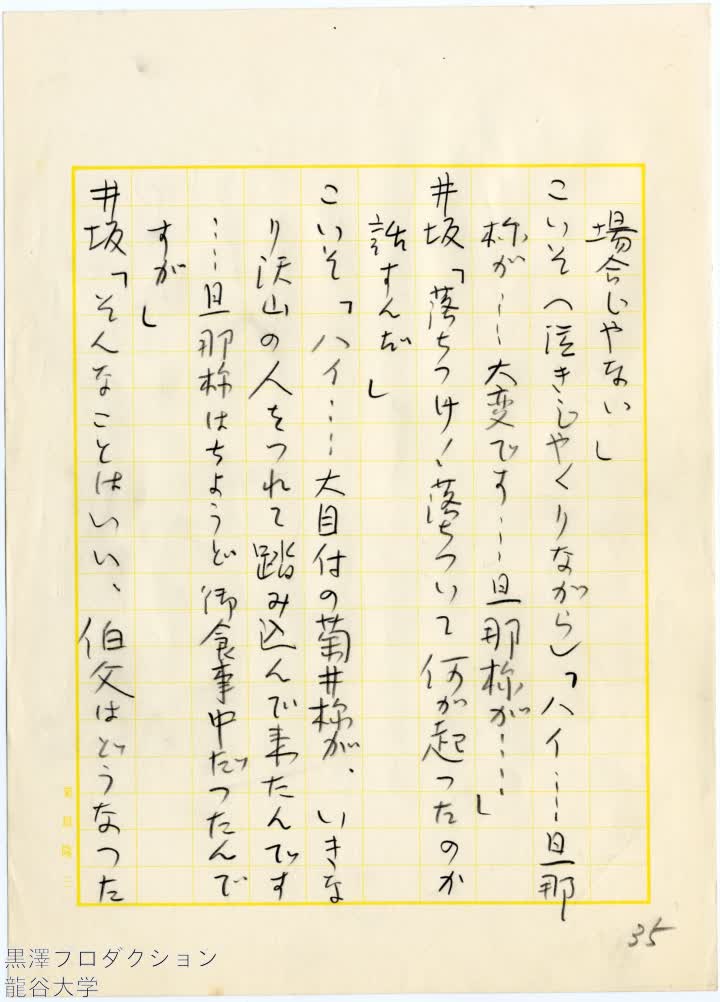 場合じやない」
こいそ（泣きじやくりながら）「ハイ……旦那
様が……大変です……旦那様が……」
井坂「落ちつけ！落ちついて何が起つたのか
話すんだ」
こいそ「ハイ……大目付の菊井様が、いきな
り沢山の人をつれて踏み込んで来たんです
……旦那様はちようど御食事中だつたんで
すが」
井坂「そんなことはいい、伯父はどうなつた
35
黒澤フロダクション
龍谷大学